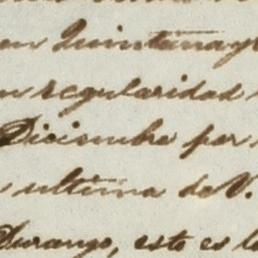 en Quintana y
n regularidad
Diciembre por
ultima de V.
Durango, esto es l